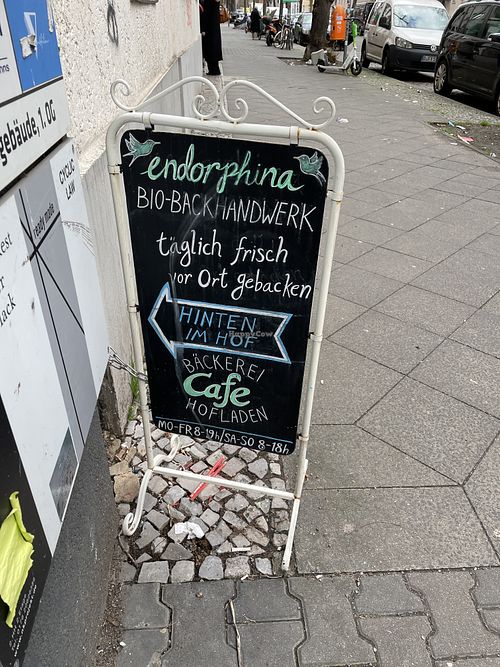 endorphina
BIO-BACKHANDWERK
täglich frisch
vor Ort gebacken
HINTEN
IM HOF
BÄCKEREI
Cafe
HOFLADEN
MO-FR 8-19h/SA-SO 8-18h
gebäude, 1.OG
CYCLO
LAW
ready made
HappyCow